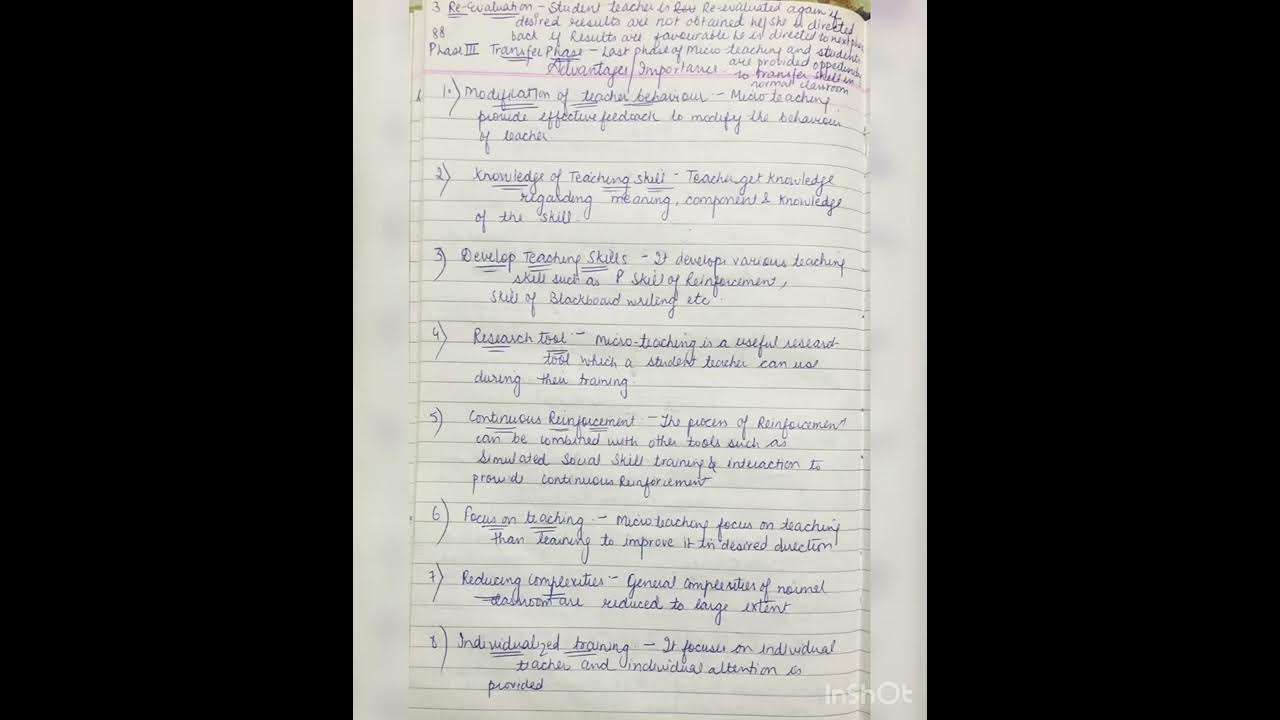 3 Re-Evaluation - Student teacher is Re-evaluated again if
desired results are not obtained he/she is directed
back if Results are favourable he is directed to next phase
88
Phase III Transfer Phase - Last phase of Micro teaching and students
are provided
to transfer skill in
normal classroom
Advantages/Importance
1.) Modification of teacher behaviour :- Micro teaching
provide effective feedback to modify the behaviour
of teacher
2) Knowledge of Teaching skill - Teacher get knowledge
regarding meaning, component & knowledge
of the skill.
3) Develop Teaching Skills - It develops various teaching
skill such as P Skill of Reinforcement,
Skill of Blackboard writing etc.
4) Research tool :- Micro-teaching is a useful research
tool which a student teacher can use
during their training.
5) Continuous Reinforcement :- The process of Reinforcement
can be combined with other tools such as
Simulated Social Skill training & interaction to
provide continuous Reinforcement
6) Focus on teaching :- Micro teaching focus on teaching
than learning to improve it in desired direction
7) Reducing complexities :- General complexities of normal
classroom are reduced to large extent
8) Individualized training - It focuses on individual
teacher and individual attention is
provided
InShOt